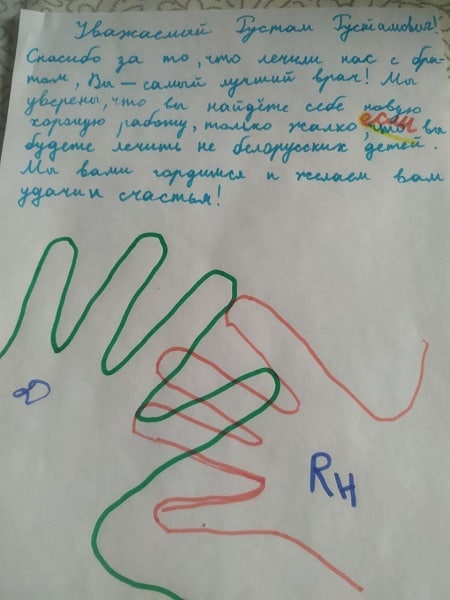 Уважаемый Густам Густамович!
Спасибо за то, что лечили нас с бра-
том, Вы – самый лучший врач! Мы
уверены, что вы найдёте себе новую
хорошую работу, только жалко, если вы
будете лечить не белорусских детей.
Мы вами гордимся и желаем вам
удачи и счастья!
RH